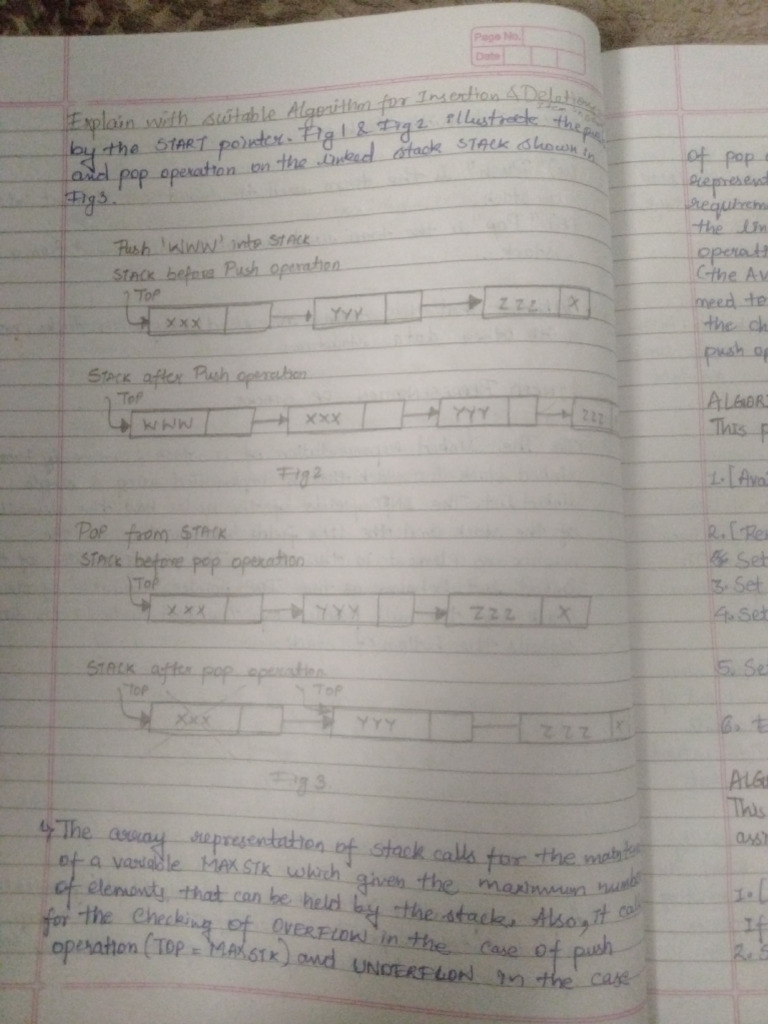 Page No.
Date
Explain with suitable Algorithm for Insertion & Deletion
by the START pointer. Fig 1 & Fig 2 illustrate the
and pop operation on the linked stack STACK shown in
Fig 3.
Push 'WWW' into STACK
STACK before Push operation
TOP
XXX YYY ZZZ X
STACK after Push operation
TOP
WWW XXX YYY ZZZ
Fig 2
Pop from STACK
STACK before pop operation
TOP
XXX YYY ZZZ X
STACK after pop operation
TOP TOP
XXX YYY ZZZ X
Fig 3
The array representation of stack calls for the
of a variable MAXSTK which given the maximum
of elements that can be held by the stack. Also, it
for the checking of OVERFLOW in the case of push
operation (TOP = MAXSTK) and UNDERFLOW in the case
of pop
represent
the
need to
the
push
This
1. [
2. [
Set
3. Set
4. Set
5.
6.
This
1. [
If
2.